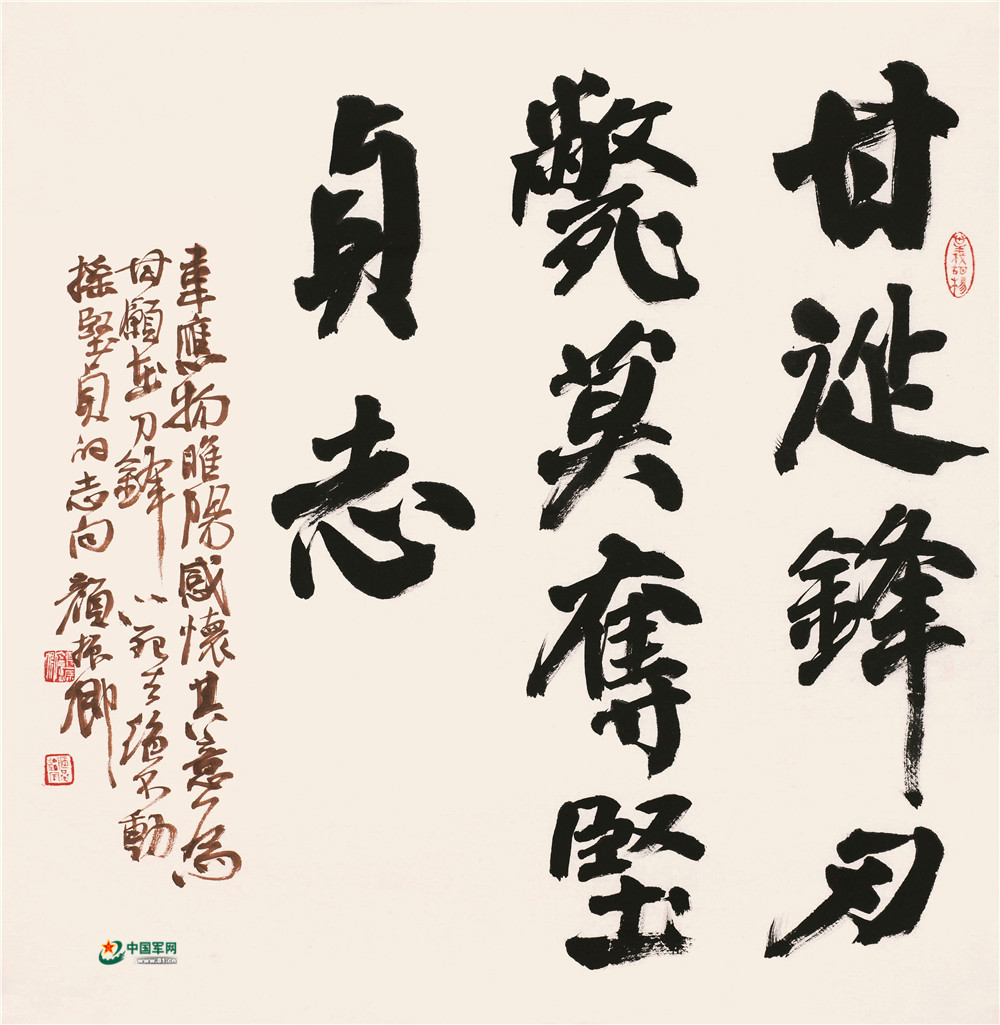 甘從鋒刃
斃莫奪堅
貞志
韋應物睢陽感懷其意為
甘願在刀鋒下死去絕不動
搖堅貞的志向 顏振卿
中国军网
www.81.cn